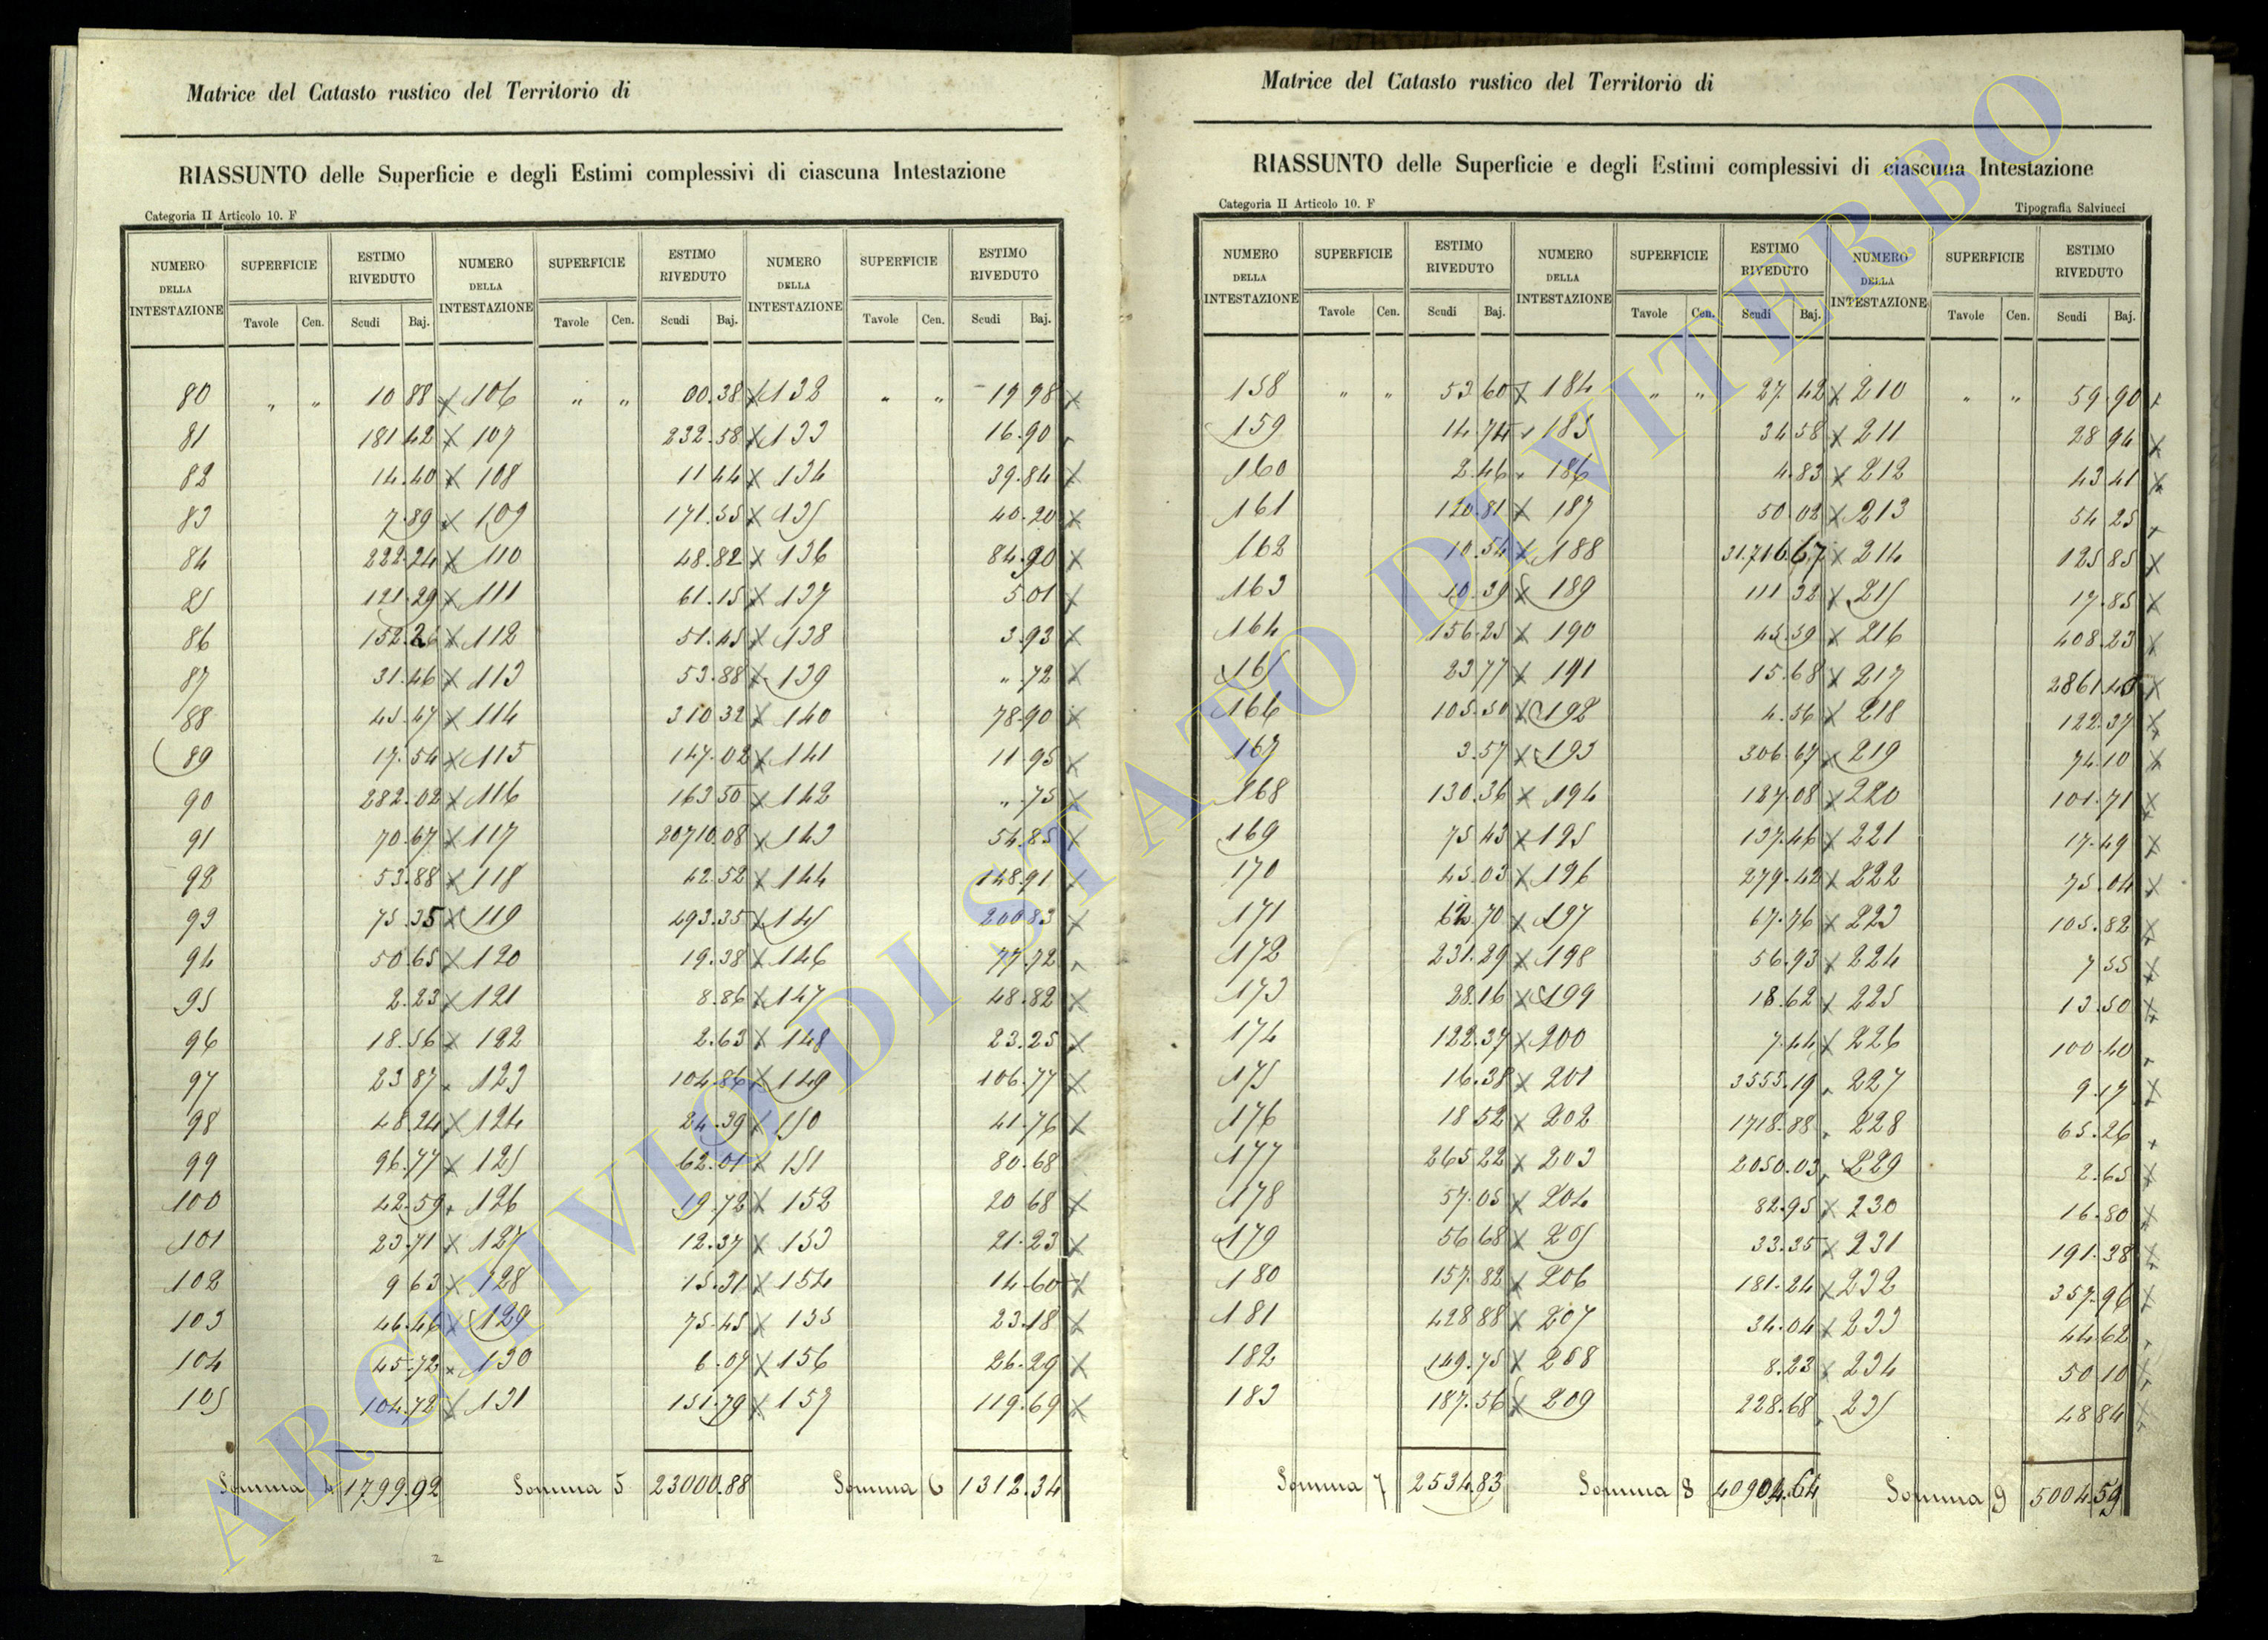 Matrice del Catasto rustico del Territorio di
RIASSUNTO delle Superficie e degli Estimi complessivi di ciascuna Intestazione
Categoria II Articolo 10. F
NUMERO DELLA INTESTAZIONE SUPERFICIE ESTIMO RIVEDUTO NUMERO DELLA INTESTAZIONE SUPERFICIE ESTIMO RIVEDUTO NUMERO DELLA INTESTAZIONE SUPERFICIE ESTIMO RIVEDUTO
Tavole Cen. Scudi Baj. Tavole Cen. Scudi Baj. Tavole Cen. Scudi Baj.
80 " " 10 88 x 106 " " 00.38 x 132 " " 19 98 x
81 181 42 x 107 232.58 x 133 16.90
82 14.40 x 108 11 44 x 134 39.84 x
83 7.89 x 109 171.55 x 135 40.20 x
84 222.24 x 110 48.82 x 136 84.90 x
85 121.29 x 111 61.15 x 137 5 01 x
86 152.26 x 112 51.45 x 138 3.93 x
87 31.46 x 113 53.88 x 139 " 72 x
88 45.47 x 114 310 32 x 140 78.90 x
89 17.54 x 115 147.02 x 141 11 95 x
90 282.02 x 116 163 50 x 142 " 75 x
91 70.67 x 117 20710.08 x 143 54.85 x
92 53.88 x 118 42.52 x 144 148.91 x
93 75.35 x 119 493.35 x 145 200 83 x
94 50 65 x 120 19.38 x 146 77.72
95 2.23 x 121 8.86 x 147 48.82 x
96 18.56 x 122 2.63 x 148 23.25 x
97 23 87 x 123 104.86 x 149 106.77 x
98 48.24 x 124 24.39 x 150 41.76 x
99 96.77 x 125 62.01 x 151 80.68
100 42.59 x 126 19.72 x 152 20 68 x
101 23.71 x 127 12.37 x 153 21.23 x
102 9 63 x 128 15.31 x 154 14.60 x
103 46.46 x 129 75.45 x 155 23.18 x
104 45.72 x 130 6.07 x 156 26.29 x
105 104.72 x 131 151.79 x 157 119.69 x
Somma 4 1799.92 Somma 5 23000.88 Somma 6 1312.34
Matrice del Catasto rustico del Territorio di
RIASSUNTO delle Superficie e degli Estimi complessivi di ciascuna Intestazione
Categoria II Articolo 10. F Tipografia Salviucci
NUMERO DELLA INTESTAZIONE SUPERFICIE ESTIMO RIVEDUTO NUMERO DELLA INTESTAZIONE SUPERFICIE ESTIMO RIVEDUTO NUMERO DELLA INTESTAZIONE SUPERFICIE ESTIMO RIVEDUTO
Tavole Cen. Scudi Baj. Tavole Cen. Scudi Baj. Tavole Cen. Scudi Baj.
158 " " 53 60 x 184 " " 27.42 x 210 " " 59.90 x
159 14.74 x 185 34 58 x 211 28 94 x
160 2.46 x 186 4.83 x 212 43 41 x
161 120.81 x 187 50.02 x 213 54 25 x
162 10.54 x 188 31.716.67 x 214 125 85 x
163 10.39 x 189 111 32 x 215 17.85 x
164 156.25 x 190 45.39 x 216 408.23 x
165 23 77 x 191 15.68 x 217 2861.45 x
166 105.50 x 192 4.56 x 218 122.37 x
167 3.57 x 193 306.67 x 219 74.10 x
168 130.36 x 194 187.08 x 220 101.71 x
169 75 43 x 195 137.46 x 221 17.49 x
170 45.03 x 196 279.42 x 222 75.04 x
171 62.70 x 197 67.76 x 223 105.82 x
172 231.29 x 198 56.93 x 224 7 55 x
173 28.16 x 199 18.62 x 225 13.50 x
174 122.37 x 200 7.44 x 226 100.40
175 16.38 x 201 3553.19 x 227 9.17 x
176 18 52 x 202 1718.88 x 228 65.26 x
177 265.22 x 203 2050.03 x 229 2.65 x
178 57.05 x 204 82.95 x 230 16.80 x
179 56 68 x 205 33.35 x 231 191.38 x
180 157.82 x 206 181.24 x 232 357.96 x
181 428 88 x 207 34.04 x 233 44.62
182 149.75 x 208 8.23 x 234 50 10 x
183 187.56 x 209 228.68 x 235 48 84 x
Somma 7 2534.83 Somma 8 40904.64 Somma 9 5004.59
ARCHIVIO DI STATO DI VITERBO